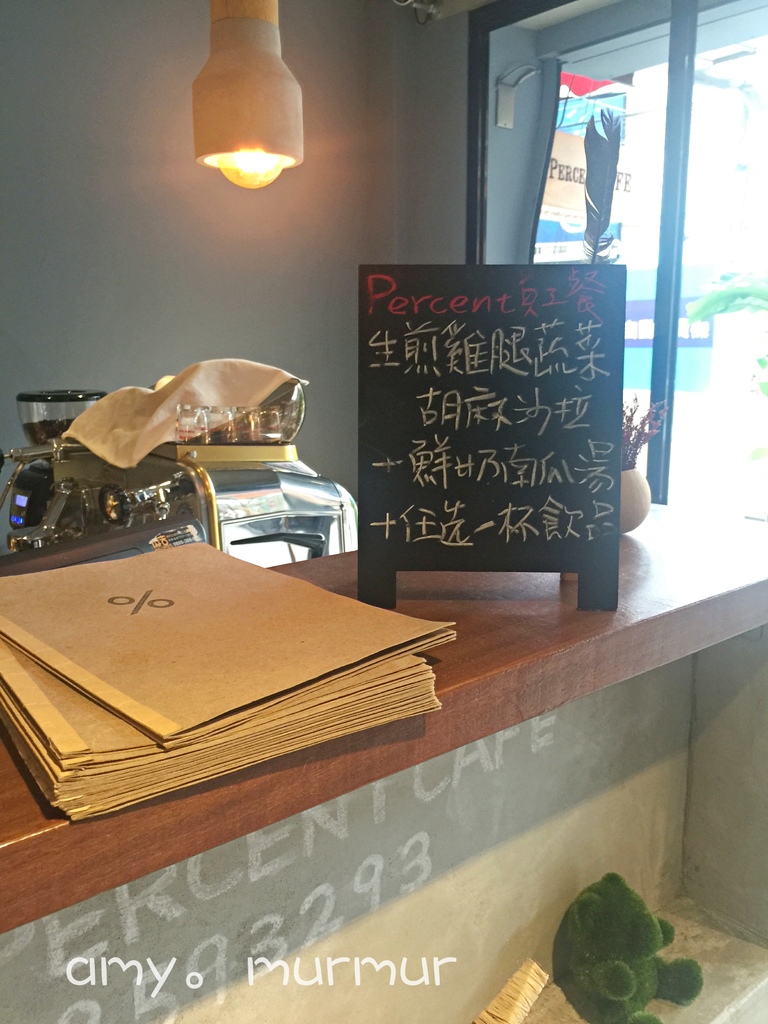 PERCENT CAFE
Percent員工餐
生煎雞腿蔬菜
胡麻沙拉
+鮮奶南瓜湯
+任選一杯飲品
%
PERCENT CAFE
2593293
amy。murmur